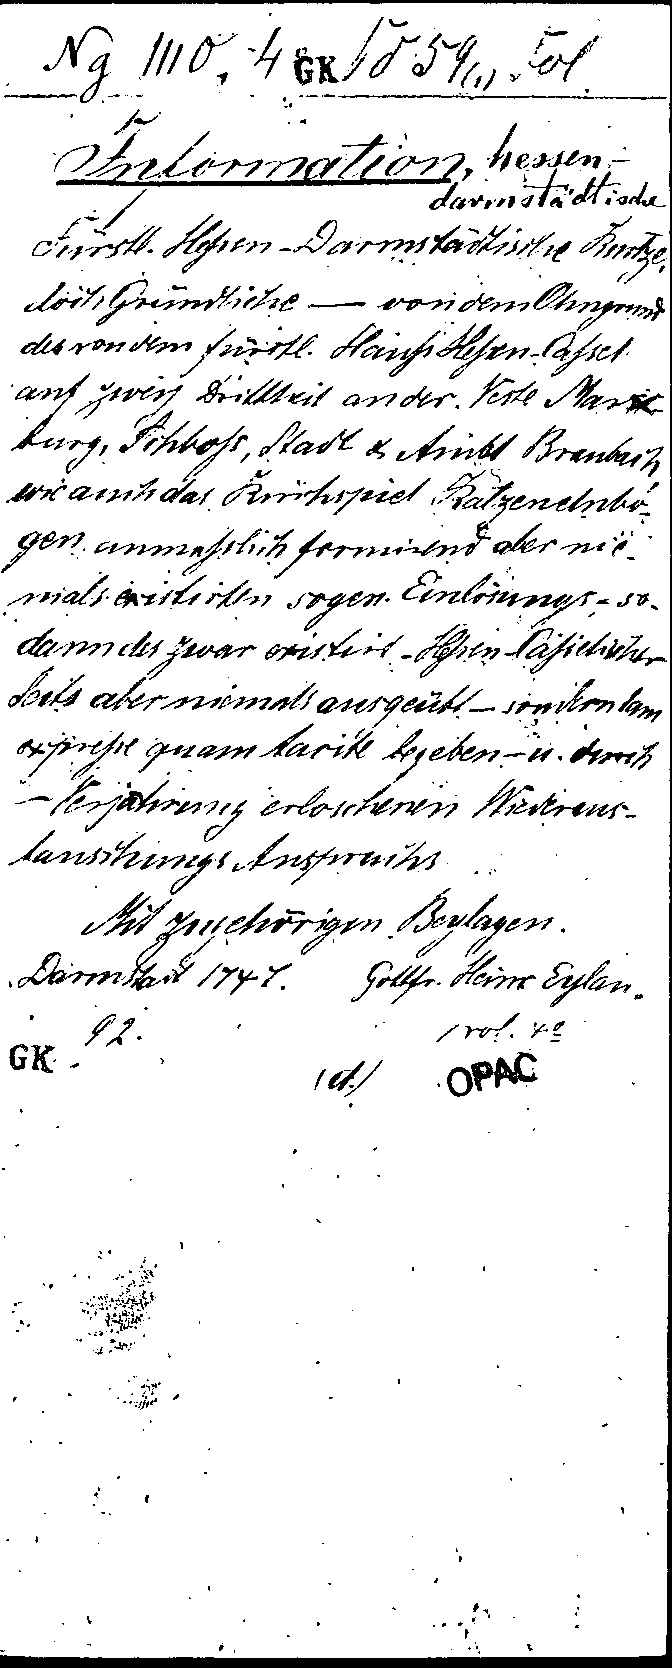 Ng 1110, 4 GK 18 59(1) Fol
Information, hessen-
darmstädtische
Fürstl. Hessen-Darmstädtische Kurtze,
doch Gründliche — von dem Ohngrund
des von dem fürstl. Hauss Hessen-Cassel
auf zwey Drittheil an der Veste Marx-
burg, Schloss, Stadt & Ambt Braubach,
wie auch das Kirchspiel Katzenelnbo-
gen anmasslich formirend aber nie-
mals existirten sogen. Einlösungs- so-
dann des zwar existirt- Hessen-Casselischer
Seits aber niemals ausgeübt — sondern tam
expresse quam tacite begeben- u. durch
— Verjährung erloschenen Wiederein-
tauschungs Anspruchs
Mit zugehörigen Beylagen.
Darmstadt 1747. Gottfr. Heinr Eylau.
92. 1 vol. 4°
GK
(ct.) OPAC